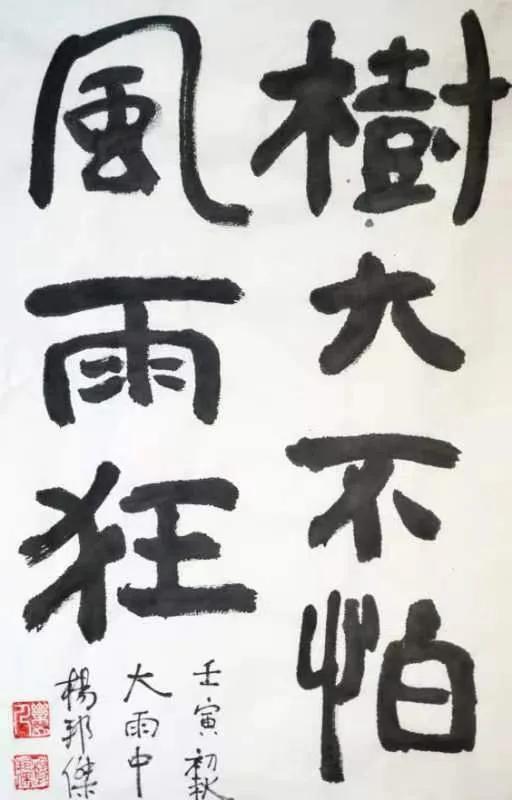 樹大不怕
風雨狂
壬寅初秋
大雨中
楊邦傑